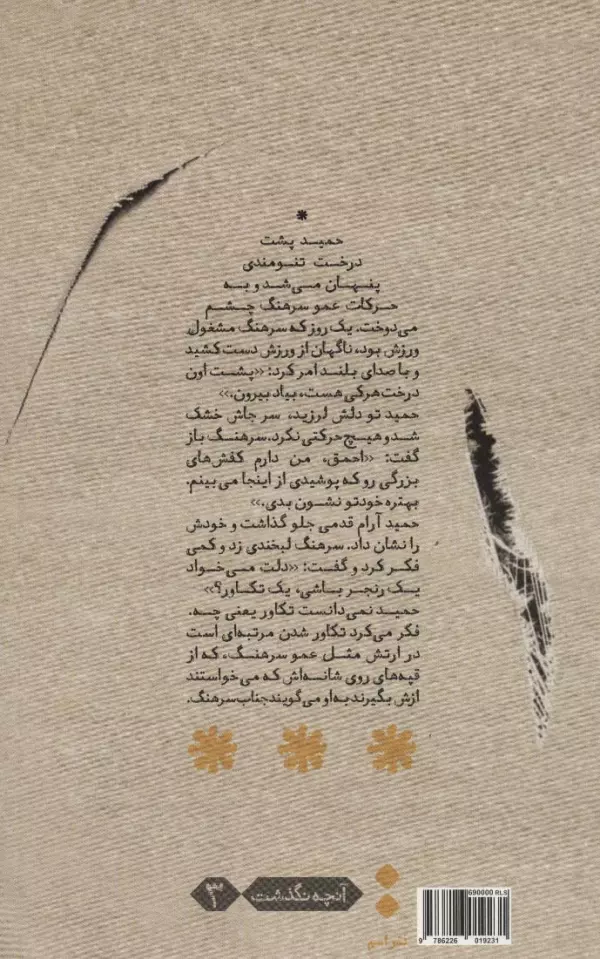 حمید پشت
درخت تنومندی
پنهان می‌شد و به
حرکات عمو سرهنگ چشم
می‌دوخت. یک روز که سرهنگ مشغول
ورزش بود، ناگهان از ورزش دست کشید
و با صدای بلند امر کرد: «پشت اون
درخت هرکی هست، بیاد بیرون.»
حمید تو دلش لرزید، سر جاش خشک
شد و هیچ حرکتی نکرد. سرهنگ باز
گفت: «احمق، من دارم کفش‌های
بزرگی رو که پوشیدی از اینجا می‌بینم.
بهتره خودتو نشون بدی.»
حمید آرام قدمی جلو گذاشت و خودش
را نشان داد. سرهنگ لبخندی زد و کمی
فکر کرد و گفت: «دلت می‌خواد
یک رنجر باشی، یک تکاور؟»
حمید نمی‌دانست تکاور یعنی چه.
فکر می‌کرد تکاور شدن مرتبه‌ای است
در ارتش مثل عمو سرهنگ، که از
قپه‌های روی شانه‌اش که می‌خواستند
ازش بگیرند به او می‌گویند جناب سرهنگ.
آنچه نگذشت
۳
690000 RLS
9 786226 019231
نشر اسم